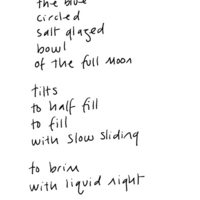 the blue
circled
salt glazed
bowl
of the full moon
tilts
to half fill
to fill
with slow sliding
to brim
with liquid night